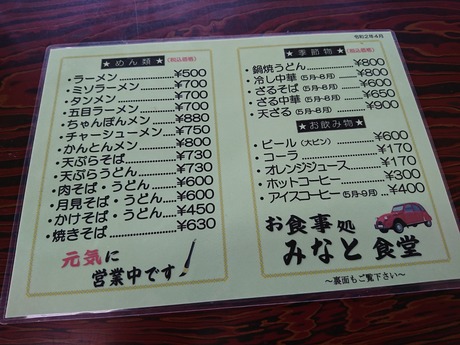 ★ めん類 ★ (税込価格)
・ラーメン ¥500
・ミソラーメン ¥700
・タンメン ¥700
・五目ラーメン ¥700
・ちゃんぽんメン ¥880
・チャーシューメン ¥750
・かんとんメン ¥800
・天ぷらそば ¥730
・天ぷらうどん ¥730
・肉そば・うどん ¥600
・月見そば・うどん ¥600
・かけそば・うどん ¥450
・焼きそば ¥630
元気に
営業中です
令和2年4月
★ 季節物 ★ (税込価格)
・鍋焼うどん ¥800
・冷し中華 (5月~8月) ¥800
・ざるそば (5月~8月) ¥600
・ざる中華 (5月~8月) ¥650
・天ざる ¥900
★ お飲み物 ★
・ビール (大ビン) ¥600
・コーラ ¥170
・オレンジジュース ¥170
・ホットコーヒー ¥300
・アイスコーヒー (5月~9月) ¥400
お食事処
みなと食堂
~裏面もご覧下さい~